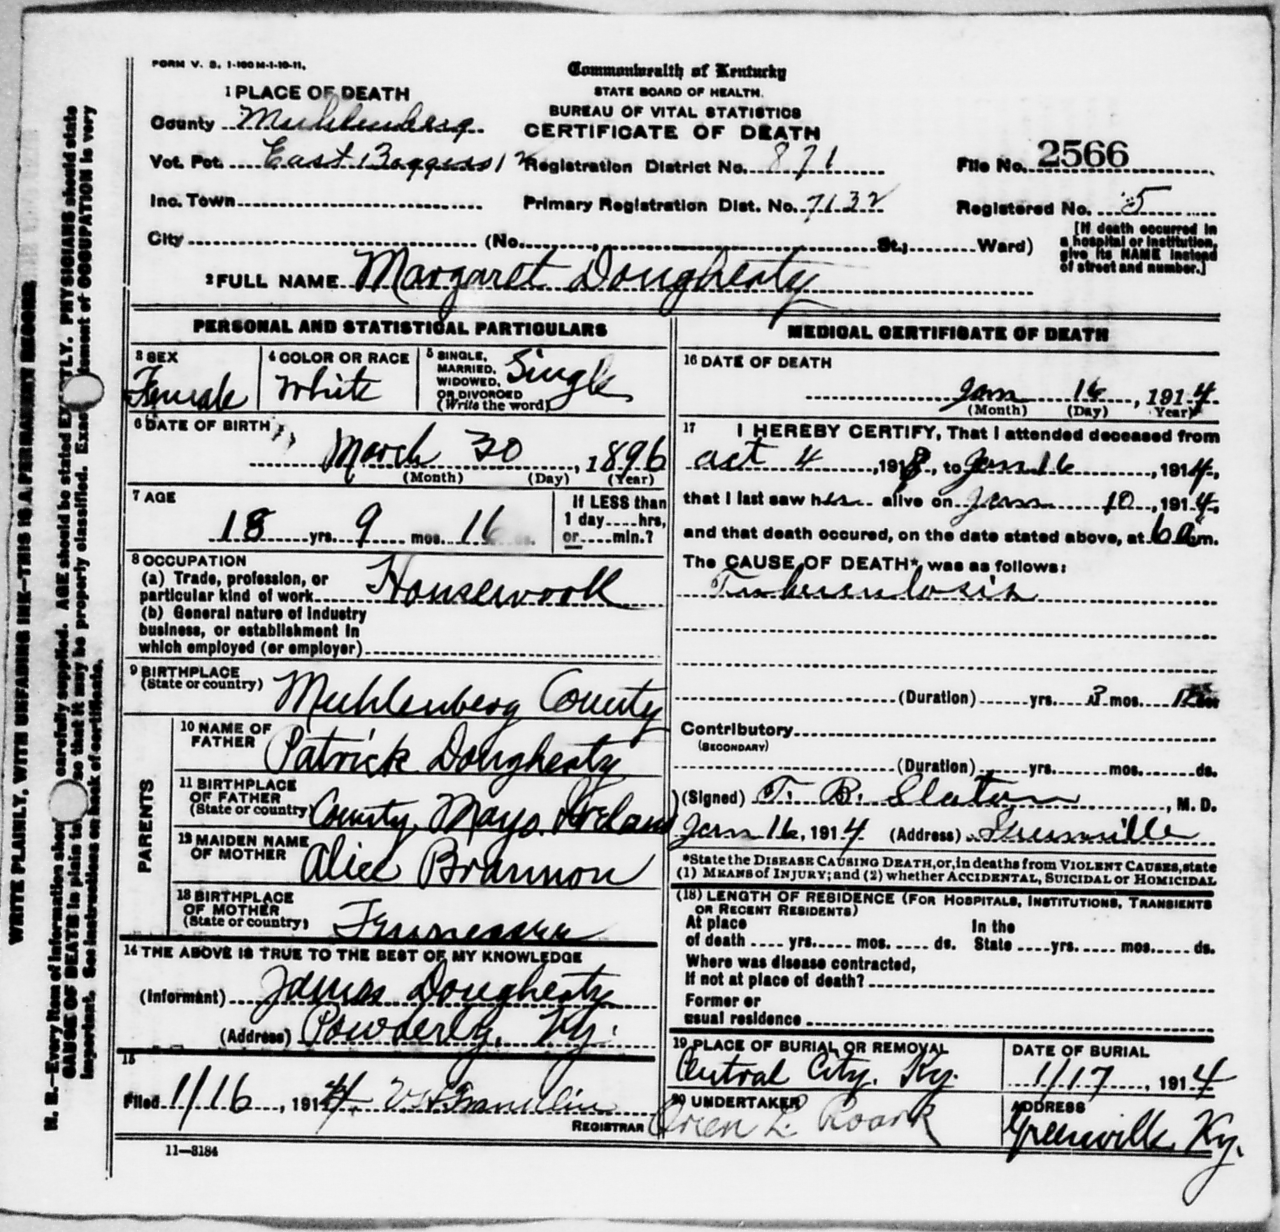 FORM V. S. 1-100M-1-10-11.
Commonwealth of Kentucky
STATE BOARD OF HEALTH.
BUREAU OF VITAL STATISTICS
CERTIFICATE OF DEATH
1 PLACE OF DEATH
County Muhlenberg
Vot. Pct. East Boggess 12 Registration District No. 871 File No. 2566
Inc. Town Primary Registration Dist. No. 7132 Registered No. 5
City (No. , St.; Ward)
[If death occurred in
a hospital or institution,
give its NAME instead
of street and number.]
2 FULL NAME Margaret Dougherty
PERSONAL AND STATISTICAL PARTICULARS
3 SEX Female
4 COLOR OR RACE White
5 SINGLE, MARRIED, WIDOWED, OR DIVORCED (Write the word) Single
6 DATE OF BIRTH
March 30, 1896
(Month) (Day) (Year)
7 AGE
18 yrs. 9 mos. 16
If LESS than
1 day....hrs,
or....min.?
8 OCCUPATION
(a) Trade, profession, or
particular kind of work Housework
(b) General nature of industry
business, or establishment in
which employed (or employer)
9 BIRTHPLACE
(State or country) Muhlenberg County
PARENTS
10 NAME OF
FATHER Patrick Dougherty
11 BIRTHPLACE
OF FATHER
(State or country) County Mayo Ireland
12 MAIDEN NAME
OF MOTHER Alice Brannon
13 BIRTHPLACE
OF MOTHER
(State or country) Tennessee
14 THE ABOVE IS TRUE TO THE BEST OF MY KNOWLEDGE
(Informant) James Dougherty
(Address) Powderly, Ky.
15
Filed 1/16, 1914 Franklin
REGISTRAR
11-3184
MEDICAL CERTIFICATE OF DEATH
16 DATE OF DEATH
Jan 16, 1914
(Month) (Day) Year)
17 I HEREBY CERTIFY, That I attended deceased from
oct 4, 191 , to Jan 16, 1914,
that I last saw her alive on Jan 10, 1914,
and that death occured, on the date stated above, at 6 a m.
The CAUSE OF DEATH*, was as follows:
Tuberculosis
(Duration) yrs. 3 mos. 12 ds.
Contributory
(SECONDARY)
(Duration) yrs. mos. ds.
(Signed) T. B. Slaton, M. D.
Jan 16, 1914 (Address) Greenville
*State the DISEASE CAUSING DEATH, or, in deaths from VIOLENT CAUSES, state
(1) MEANS of INJURY; and (2) whether ACCIDENTAL, SUICIDAL or HOMICIDAL
(18) LENGTH OF RESIDENCE (FOR HOSPITALS, INSTITUTIONS, TRANSIENTS
OR RECENT RESIDENTS)
At place In the
of death .... yrs. .... mos. .... ds. State .... yrs. .... mos. .... ds.
Where was disease contracted,
If not at place of death?
Former or
usual residence
19 PLACE OF BURIAL OR REMOVAL
Central City, Ky.
DATE OF BURIAL
1/17, 1914
20 UNDERTAKER
Orien L. Roark
ADDRESS
Greenville Ky.
WRITE PLAINLY, WITH UNFADING INK—THIS IS A PERMANENT RECORD
N. B.—Every item of information should carefully supplied. AGE should be stated EXACTLY. PHYSICIANS should state
CAUSE OF DEATH in plain so that it may be properly classified. Exact statement of OCCUPATION is very
important. See instructions on back of certificate.